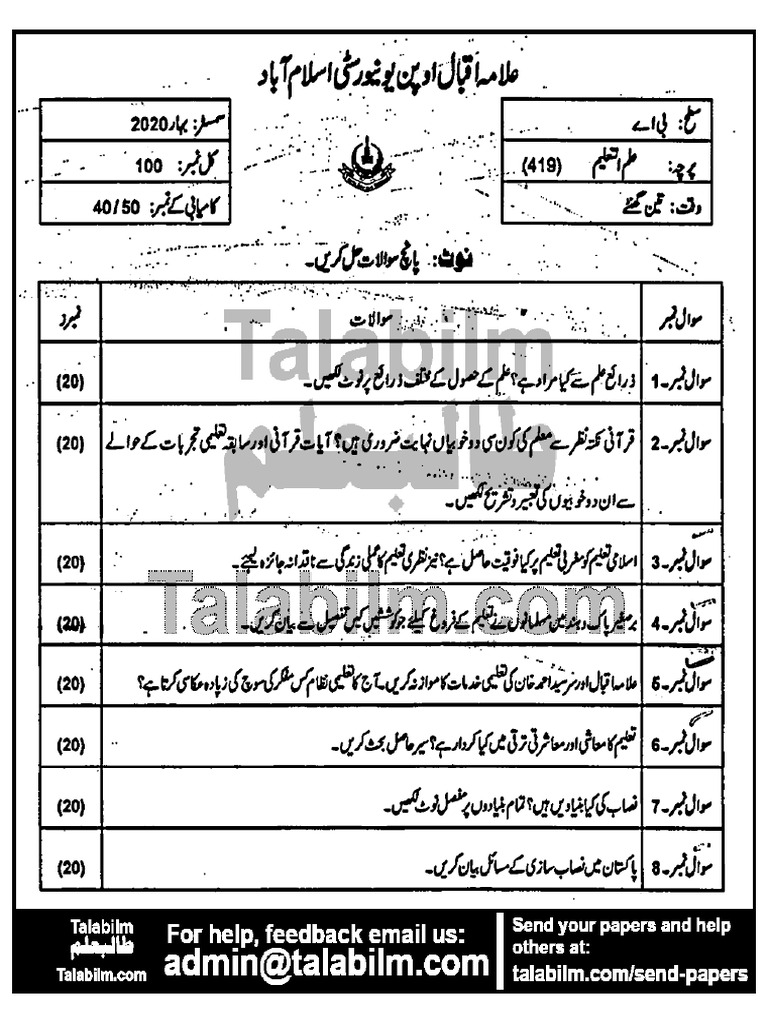 علامہ اقبال اوپن یونیورسٹی اسلام آباد
سطح: بی اے
سمسٹر: بہار 2020
پرچہ: علم التعلیم (419)
کل نمبر: 100
وقت: تین گھنٹے
کامیابی کے نمبر: 40/50
نوٹ: پانچ سوالات حل کریں۔
سوال نمبر سوالات نمبرز
سوال نمبر۔1 ذرائع علم سے کیا مراد ہے؟ علم کے حصول کے مختلف ذرائع پر نوٹ لکھیں۔ (20)
سوال نمبر۔2 قرآنی نکتہ نظر سے معلم کی کون سی دو خوبیاں نہایت ضروری ہیں؟ آیات قرآنی اور سابقہ تعلیمی تجربات کے حوالے (20)
سے ان دو خوبیوں کی تعبیر و تشریح لکھیں۔
سوال نمبر۔3 اسلامی تعلیم کو مغربی تعلیم پر کیا فوقیت حاصل ہے؟ نیز نظری تعلیم کا عملی زندگی سے ناقدانہ جائزہ لیجئے۔ (20)
سوال نمبر۔4 برصغیر پاک و ہند میں مسلمانوں نے تعلیم کے فروغ کیلئے جو کوششیں کیں تفصیل سے بیان کریں۔ (20)
سوال نمبر۔5 علامہ اقبال اور سرسید احمد خان کی تعلیمی خدمات کا موازنہ کریں۔ آج کا تعلیمی نظام کس مفکر کی سوچ کی زیادہ عکاسی کرتا ہے؟ (20)
سوال نمبر۔6 تعلیم کا معاشی اور معاشرتی ترقی میں کیا کردار ہے؟ سیر حاصل بحث کریں۔ (20)
سوال نمبر۔7 نصاب کی کیا بنیادیں ہیں؟ تمام بنیادوں پر مفصل نوٹ لکھیں۔ (20)
سوال نمبر۔8 پاکستان میں نصاب سازی کے مسائل بیان کریں۔ (20)
Talabilm
طالبعلم
Talabilm.com
Talabilm
طالبعلم
Talabilm.com
For help, feedback email us:
admin@talabilm.com
Send your papers and help
others at:
talabilm.com/send-papers